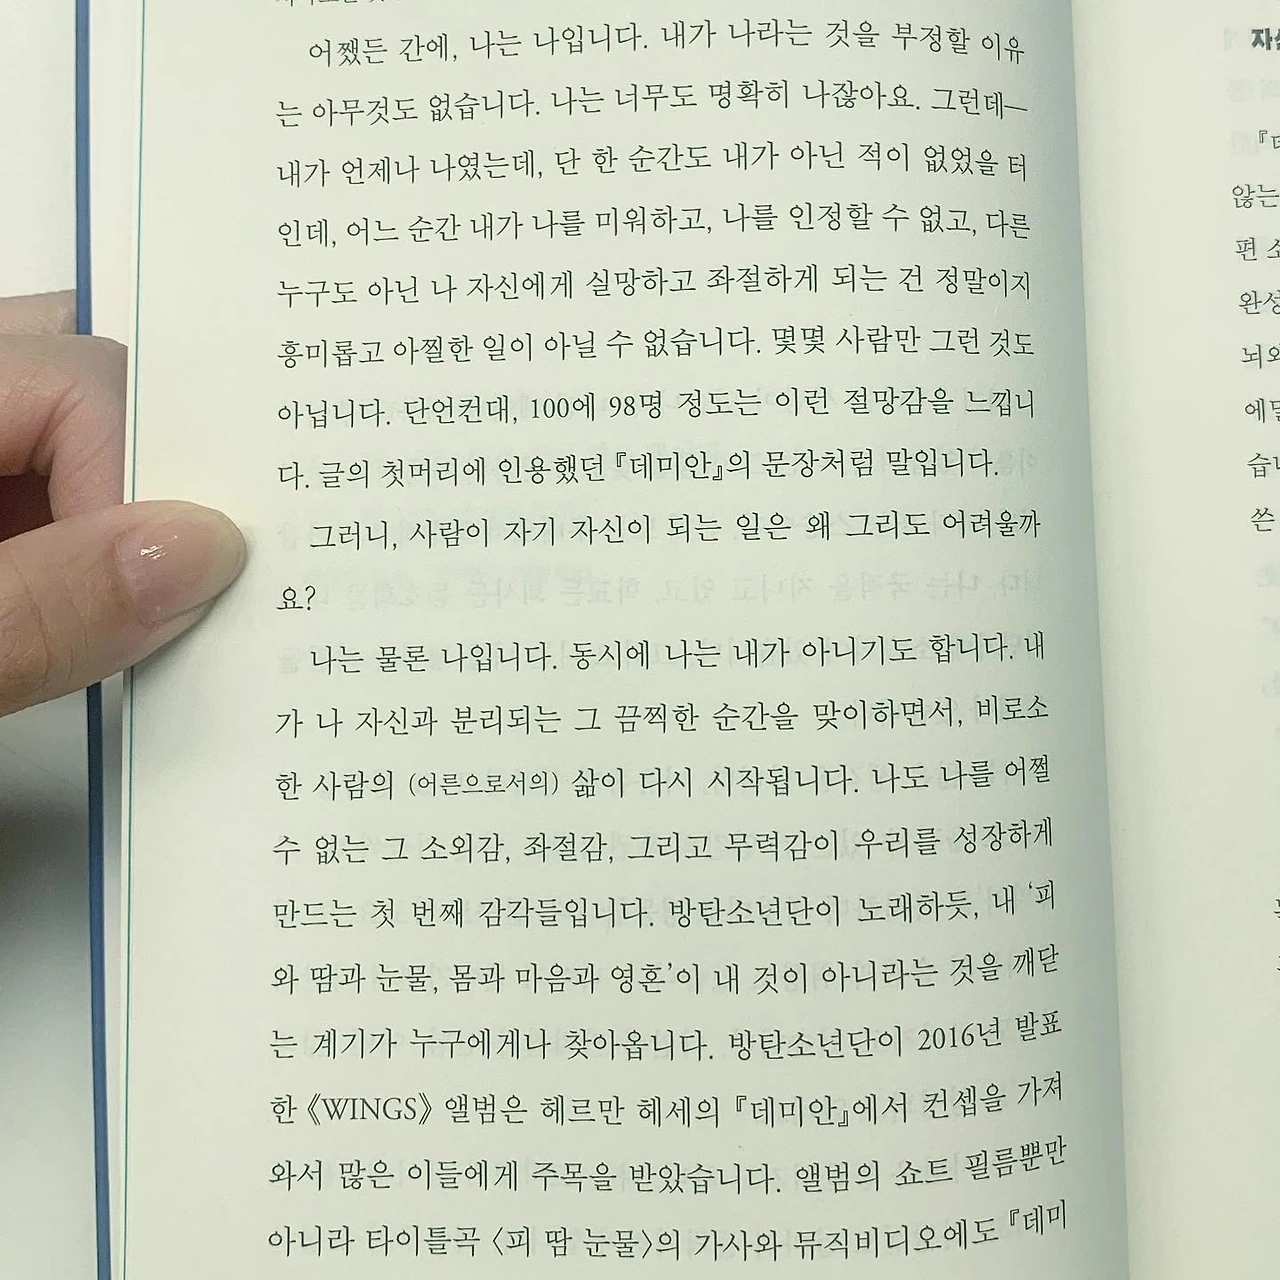 어쨌든 간에, 나는 나입니다. 내가 나라는 것을 부정할 이유
는 아무것도 없습니다. 나는 너무도 명확히 나잖아요. 그런데—
내가 언제나 나였는데, 단 한 순간도 내가 아닌 적이 없었을 터
인데, 어느 순간 내가 나를 미워하고, 나를 인정할 수 없고, 다른
누구도 아닌 나 자신에게 실망하고 좌절하게 되는 건 정말이지
흥미롭고 아찔한 일이 아닐 수 없습니다. 몇몇 사람만 그런 것도
아닙니다. 단언컨대, 100에 98명 정도는 이런 절망감을 느낍니
다. 글의 첫머리에 인용했던 『데미안』의 문장처럼 말입니다.
그러니, 사람이 자기 자신이 되는 일은 왜 그리도 어려울까
요?
나는 물론 나입니다. 동시에 나는 내가 아니기도 합니다. 내
가 나 자신과 분리되는 그 끔찍한 순간을 맞이하면서, 비로소
한 사람의 (어른으로서의) 삶이 다시 시작됩니다. 나도 나를 어쩔
수 없는 그 소외감, 좌절감, 그리고 무력감이 우리를 성장하게
만드는 첫 번째 감각들입니다. 방탄소년단이 노래하듯, 내 ‘피
와 땀과 눈물, 몸과 마음과 영혼’이 내 것이 아니라는 것을 깨닫
는 계기가 누구에게나 찾아옵니다. 방탄소년단이 2016년 발표
한 《WINGS》 앨범은 헤르만 헤세의 『데미안』에서 컨셉을 가져
와서 많은 이들에게 주목을 받았습니다. 앨범의 쇼트 필름뿐만
아니라 타이틀곡 〈피 땀 눈물〉의 가사와 뮤직비디오에도 『데미
않는
편
쓴